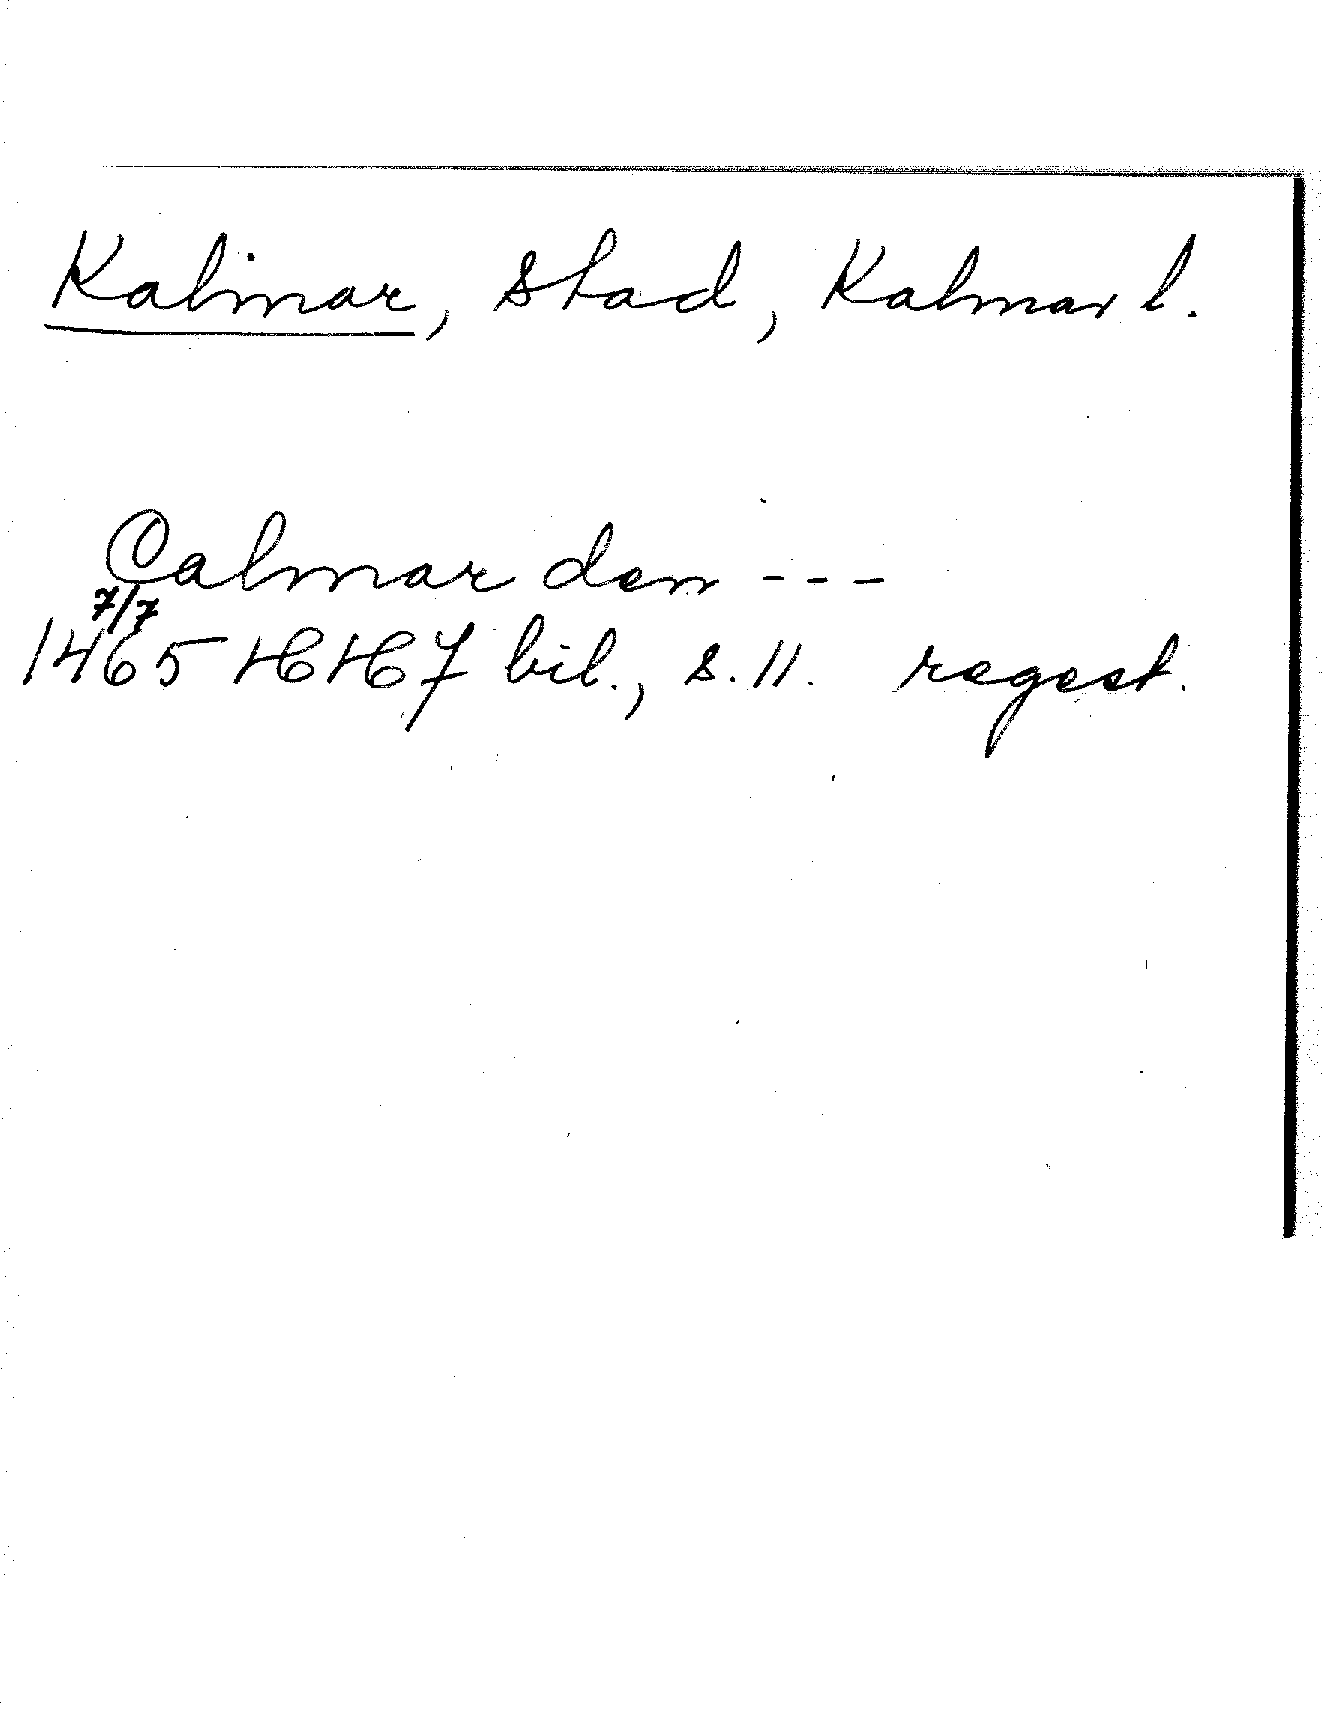 Kalmar, stad, Kalmar l.
Calmar den ---
7/7
1465 HH 7 bil., s. 11. regest.